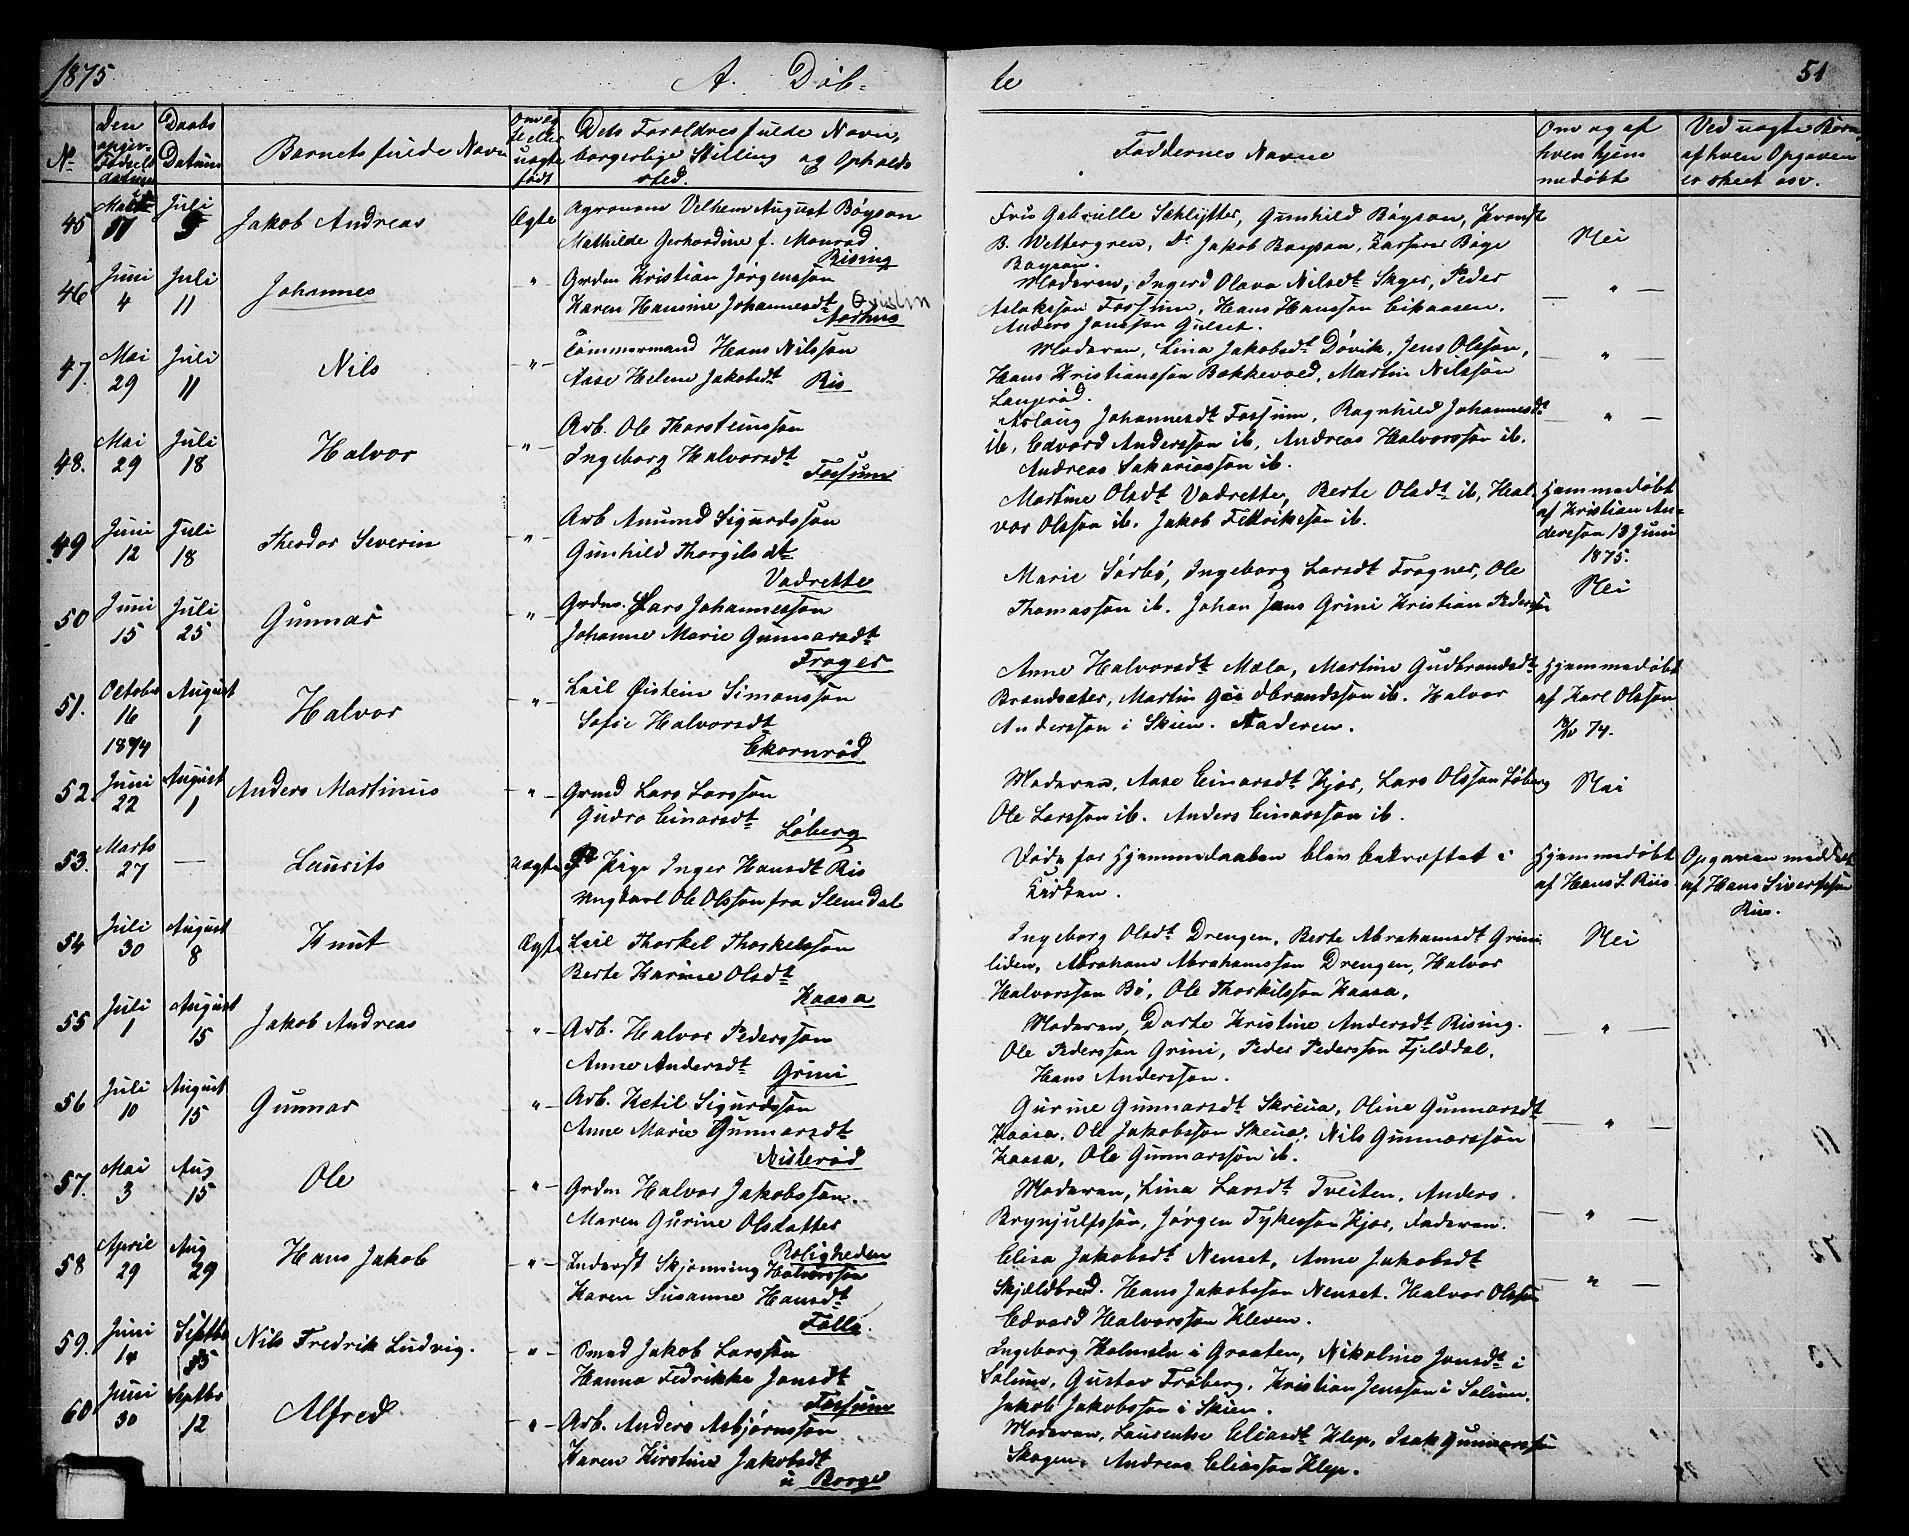 1875
A. Døb-
te
51
No
Den
Fødsels
datum
Daabs
Datum
Barnets fulde Navn
Om æg
te eller
uægte
født
Dets Forældres fulde Navn,
borgerlige Stilling og Opholds
sted.
Faddernes Navne
Om og af
hven hjem
medøbt
Ved uægte Børn,
af hven Opgaven
er skeet osv.
45
11
Juli
Jakob Andreas
Ægte
Agronom Vilhem August Bøyson
Mathilde Gerhardine f. Monrad
Rising
Fru Gabrielle Schlytter, Gunhild Bøyson, Provst
B. Wettergren, Dr Jakob Bøyson, Kasserer Böge
Boyson.
Nei
46
Juni
4
Juli
11
Johannes
-"-
Grdm Kristian Jørgensson
Karen Hansine Johannesdt
Aarhus
Moderen, Ingerd Olava Nilsdt Skyer, Peder
Aslaksson Fossum, Hans Hansson Eikaasen.
Anders Jonsson Gulset.
— " —
47.
Mai
29
Juli
11
Nils
-"-
Tømmermand Hans Nilsson
Aase Helene Jakobsdt Ris
Moderen, Lina Jakobsdt Døvik, Jens Olsson,
Hans Kristiansson Bakkevold, Martin Nilsson
Langerød.
— " —
48.
Mai
29
Juli
18
Halvor
-"-
Arb. Ole Thorsteinsson
Ingeborg Halvorsdt
Fossum
Aslaug Johannesdt Fossum, Ragnhild Johannesdt
ib, Edvard Andersson ib, Andreas Halvorsson ib.
Andreas Sakariasson ib.
— " —
49
Juni
12
Juli
18
Theodor Severin
-"-
Arb Anund Sigurdsson
Gunhild Thorgilsdt
Vadrette
Martine Olsdt Vadrette, Berte Olsdt ib, Hal-
vor Olsson ib. Jakob Fedriksson ib.
Hjemmedøbt
af Kristian An-
dersson 13 Juni
1875.
50
Juni
15
Juli
25
Gunnar
-"-
Grdm. Lars Johannesson
Johanne Marie Gunnarsdt
Frogner
Marie Sørbø, Ingeborg Larsdt Frogner, Ole
Thomasson ib. Johan Jens Grini Kristian Pedersson
Nei
51.
October
16
1874
August
1
Halvor
-"-
Leil Øistein Simonsson
Sofie Halvorsdt
Ekornrød
Anne Halvorsdt Mæla, Martine Gudbrandsdt
Brandsæter, Martin Gudbrandsson ib. Halvor
Andersson i Skien. Faderen.
Hjemmedøbt
af Karl Olsson
74.
52
Juni
22
August
1
Anders Martinus
-"-
Grmd Lars Larsson
Gudro Einarsdt
Løberg
Moderen, Aase Einarsdt Kjør, Lars Olsson Løberg
Ole Larsson ib. Anders Einarsson ib.
Nei
53.
Marts
27
—
Laurits
uægte
Pige Inger Hansdt Ris
Ungkarl Ole Olsson fra Slemdal
Vidn for Hjemmedaaben blev bekræftet i
Kirken.
Hjemmedøbt
af Hans S. Riis.
Opgaven meddelt
af Hans Sivertsson
Riis.
54
Juli
30
August
8
Knut
Ægte
Leil Thorkel Thorkelsson
Berte Karine Olsdt
Kaasa
Ingeborg Olsdt Drengen, Berte Abrahamsdt Grini
liden, Abraham Abrahamsson Drengen, Halvor
Halvorsson Bö, Ole Thorkilsson Kaasa,
Nei
55
Juli
1
August
15
Jakob Andreas
-"-
Arb. Halvor Pedersson
Anne Andersdt Grini
Moderen, Dorte Kristine Andersdt Rising.
Ole Pedersson Grini, Peder Pedersson Fjelddal.
Hans Andersson.
— " —
56
Juli
10
August
15
Gunnar
-"-
Arb. Ketil Sigurdsson
Anne Marie Gunnarsdt
Risterød
Gurine Gunnarsdt Skreua, Oline Gunnarsdt
Kaasa, Ole Jakobsson Skeua, Nils Gunnarsson
Kaasa, Ole Gunnarsson ib.
— " —
57.
Mai
3
Aug
15
Ole
-"-
Grdm Halvor Jakobsson.
Maren Gurine Olsdatter
Roligheden
Moderen, Lina Larsdt Tveiten, Anders
Brynjulfsson, Jørgen Tykesson Kjør, Faderen.
— " —
58
April
29
Aug
29
Hans Jakob
-"-
Inderst Skjønning Halvorsson
Karen Susanne Hansdt
Falla.
Elisa Jakobsdt Nenset, Anne Jakobsdt
Skjældbred. Hans Jakobsson Nenset. Halvor Olsson
Edvard Halvorsson Kleven.
— " —
59.
Juni
14
Septbr
Nils Fredrik Ludvig.
-"-
Smed Jakob Larsson
Hanna Fedrikke Jonsdt
Fossum
Ingeborg Holmsen i Graaten, Nikoline Jonsdt i
Solum, Gustav Frøberg, Kristian Jensson i Solum.
Jakob Jakobsson i Skien.
60
Juni
30
Septbr
12
Alfred
-"-
Arb. Anders Asbjørnsson
Karen Kirstine Jakobsdt
u Borge
Moderen, Laurentse Eliasdt Klep, Isak Gunnarsson
Skogen, Andreas Eliasson Klep.